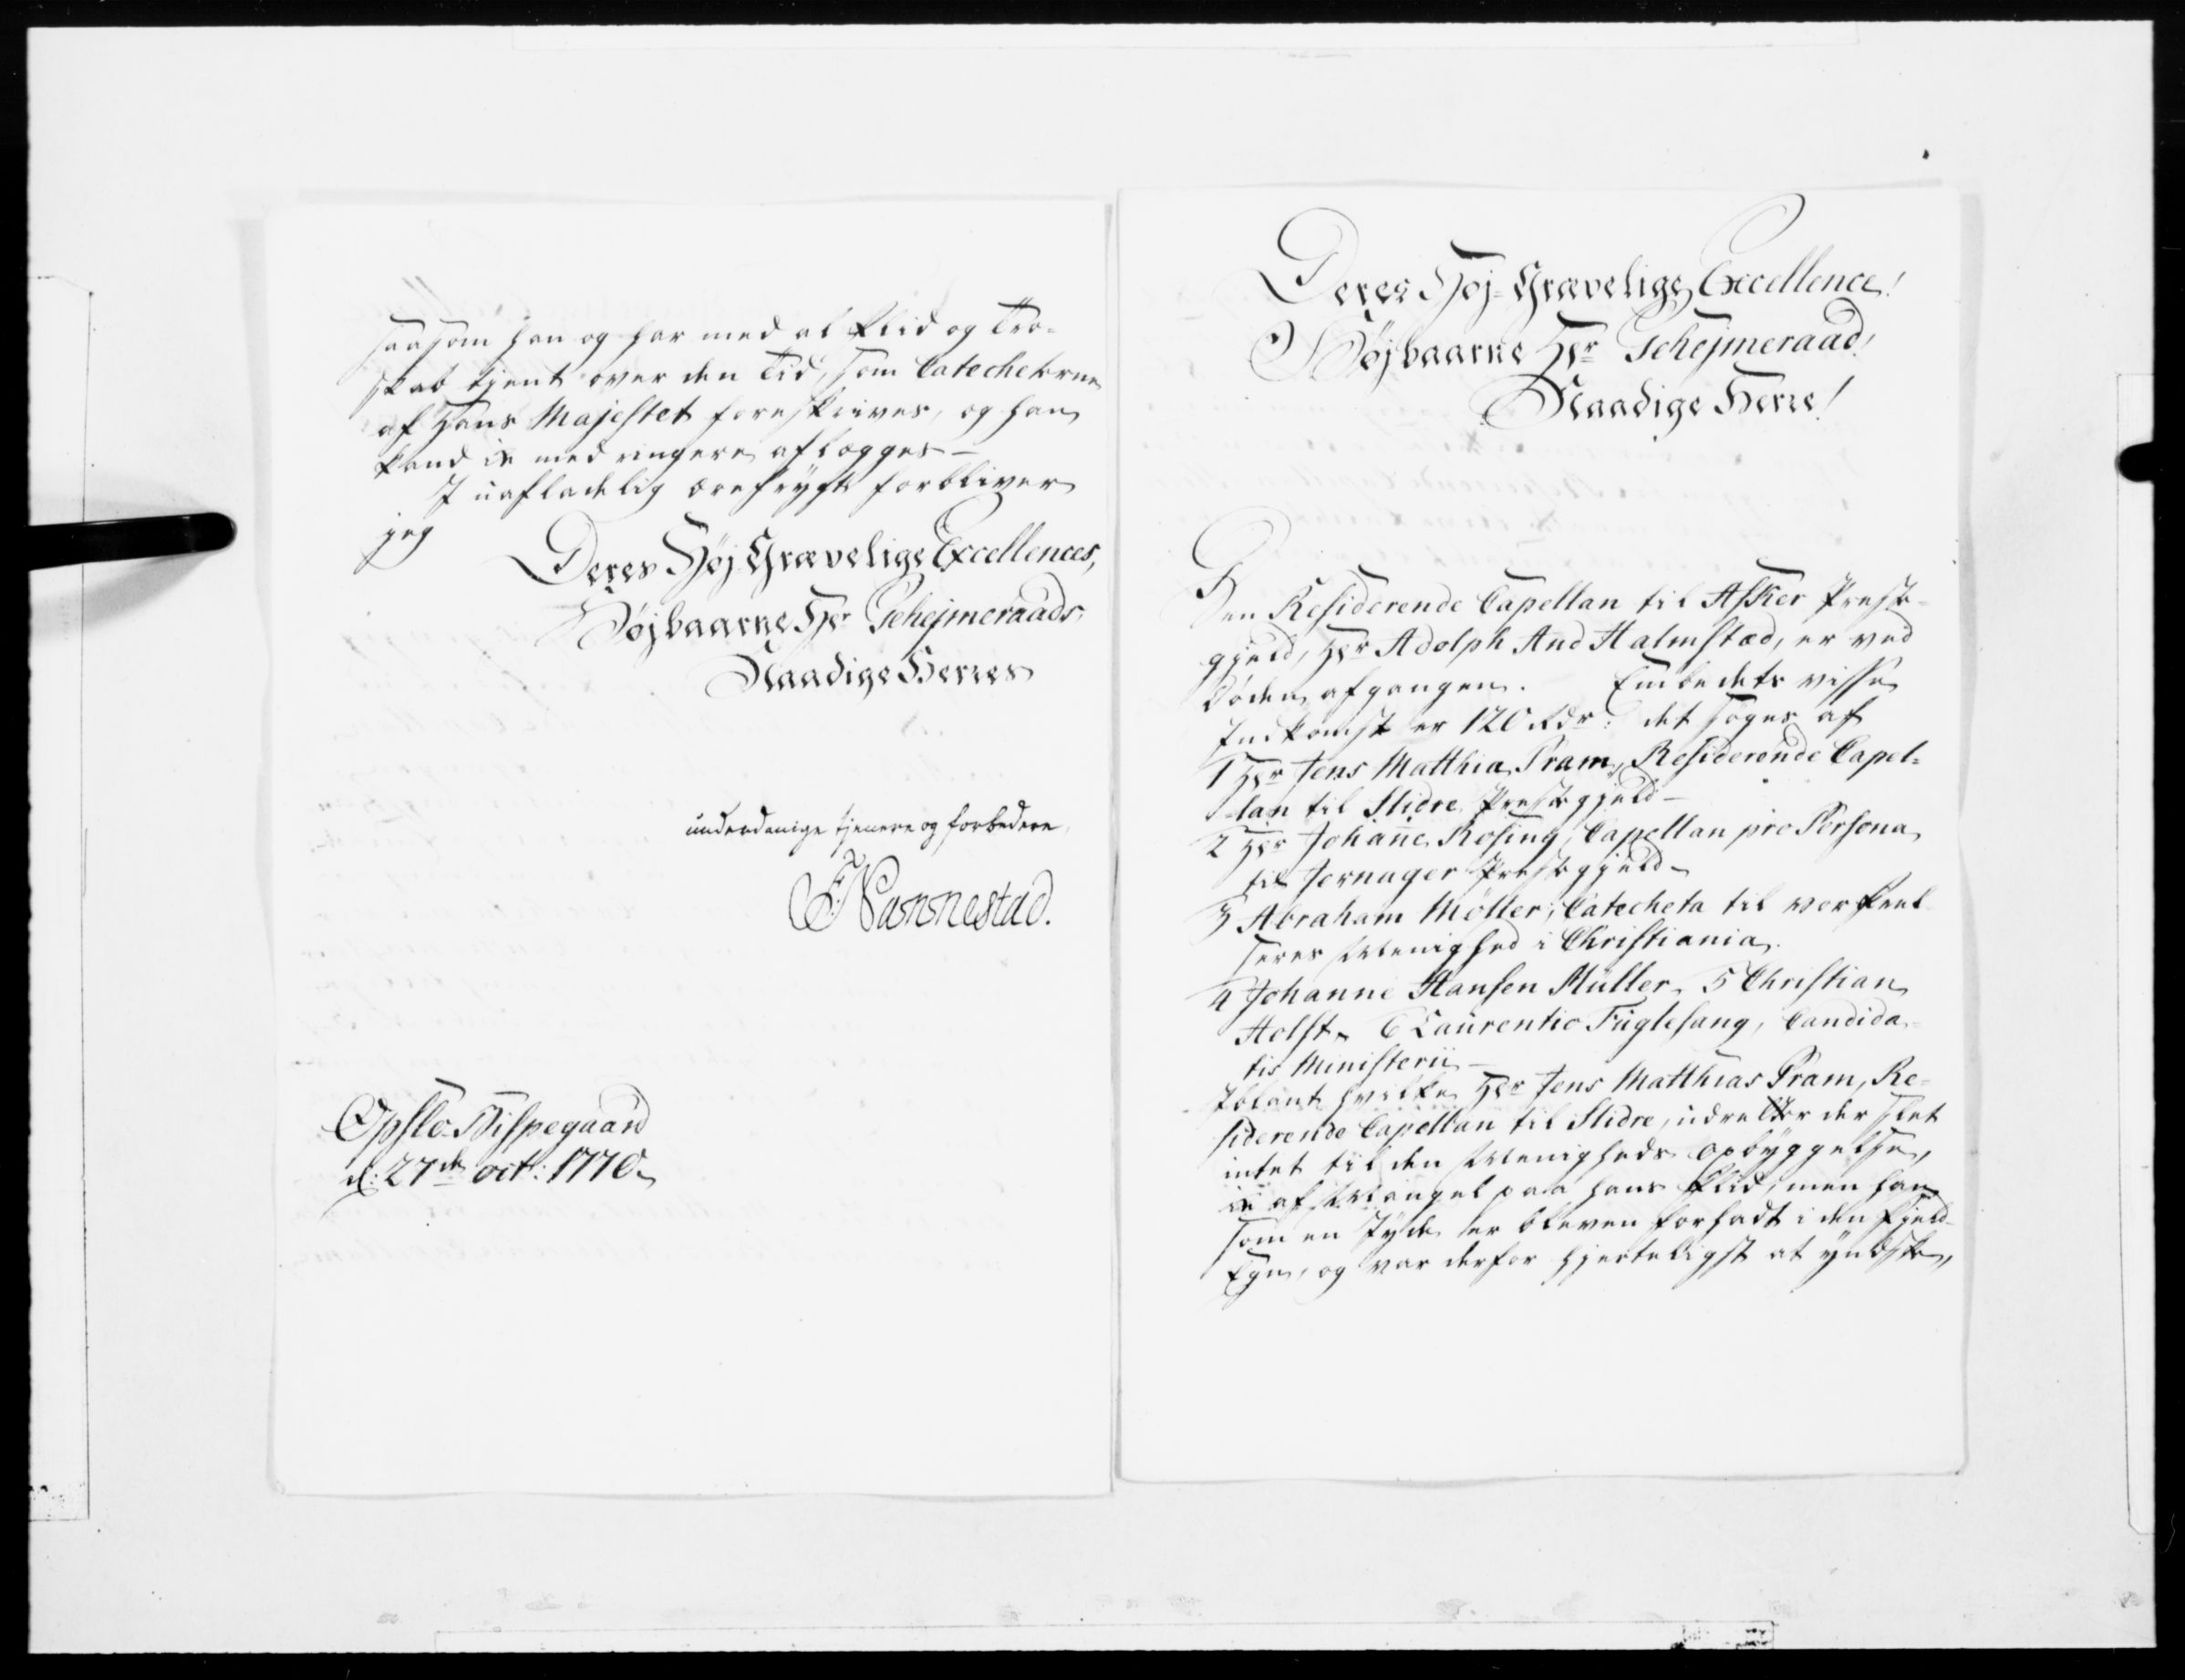 saasom han og har med al Flid og Tro-
skab tjent over den Tid, som Catecheterne
af Hans Majestet foreskrives, og han
kand ei med ringere aflægges -
I uafladelig ærefrygt forbliver
jeg
Deres Høj Grævelige Excellences,
Højbaarne Hr Gehejmeraads
Naadige Herres
underdanige tjenere og forbedere,
F Nannestad.
Opslo Bispegaard
d: 27de octb: 1770
Deres Høj-Grævelige Excellence!
Højbaarne Hr Gehejmeraad!
Naadige Herre!
Den Residerende Capellan til Asker Præste-
gjeld, Hr Adolph And Halmstad, er ved
Døden afgangen. Embedets visse
Indkomst er 120 Rdr: det søges af
1 Hr Jens Matthia Pram, Residerende Capel-
lan til Slidre Præstegjeld -
2 Hr Johanne Rosing, Capellan pro Persona
til Jernager Præstegjeld -
3 Abraham Møller, Catecheta til vor Frel
seres Menighed i Christiania.
4 Johanne Hansen Müller, 5 Christian
Holst, 6 Laurentio Fuglesang, Candida-
tis Ministerii -
Iblant hvilke Hr Jens Matthias Pram, Re-
siderende Capellan til Slidre, udretter der slet
intet til den Menigheds Opbyggelse,
ei af Mangel paa hans Flid, men han
som en Jyde er bleven forhadt i den Fjeld-
Egn, og var derfor hjerteligst at yndske,